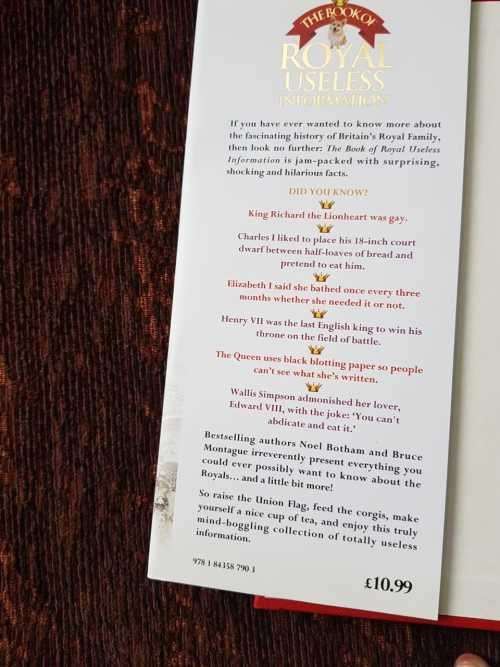 THE BOOK OF
ROYAL
USELESS
INFORMATION
If you have ever wanted to know more about
the fascinating history of Britain's Royal Family,
then look no further: The Book of Royal Useless
Information is jam-packed with surprising,
shocking and hilarious facts.
DID YOU KNOW?
King Richard the Lionheart was gay.
Charles I liked to place his 18-inch court
dwarf between half-loaves of bread and
pretend to eat him.
Elizabeth I said she bathed once every three
months whether she needed it or not.
Henry VII was the last English king to win his
throne on the field of battle.
The Queen uses black blotting paper so people
can't see what she's written.
Wallis Simpson admonished her lover,
Edward VIII, with the joke: 'You can't
abdicate and eat it.'
Bestselling authors Noel Botham and Bruce
Montague irreverently present everything you
could ever possibly want to know about the
Royals... and a little bit more!
So raise the Union Flag, feed the corgis, make
yourself a nice cup of tea, and enjoy this truly
mind-boggling collection of totally useless
information.
978 1 84358 790 3
£10.99